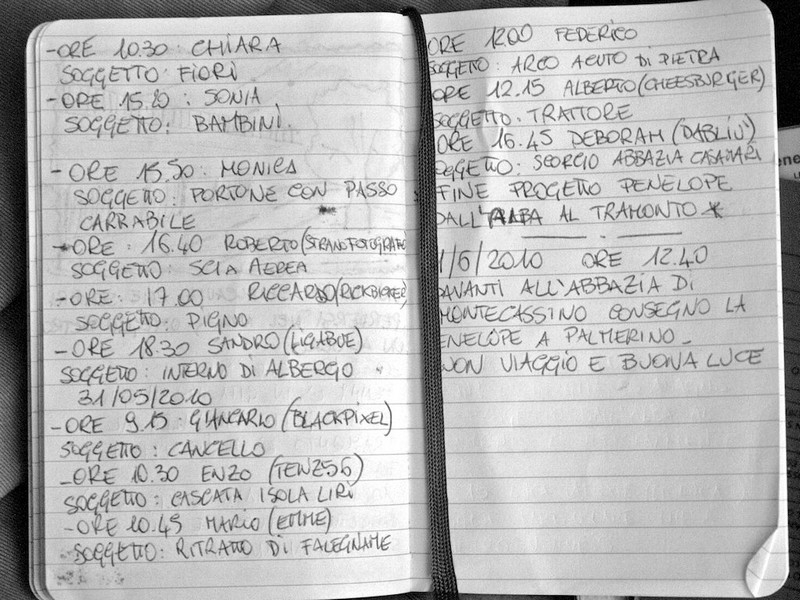 -ORE 10.30: CHIARA
SOGGETTO: FIORI
-ORE 15.20: SONIA
SOGGETTO: BAMBINI.
-ORE 15.50: MONICA
SOGGETTO: PORTONE CON PASSO
CARRABILE
-ORE: 16.40 ROBERTO (STRANOFOTOGRAFO
SOGGETTO: SCIA AEREA
-ORE: 17.00 RICCARDO
SOGGETTO: PIGNO
-ORE 18.30 SANDRO (LIGABUE)
SOGGETTO: INTERNO DI ALBERGO
31/05/2010
-ORE 9.15: GIANCARLO (BLACKPIXEL)
SOGGETTO: CANCELLO
-ORE 10.30 ENZO (TENZ56)
SOGGETTO: CASCATA ISOLA LIRI
-ORE 10.45 MARIO (EMME)
SOGGETTO: RITRATTO DI FALEGNAME
ORE 12.00 FEDERICO
SOGGETTO: ARCO ACUTO DI PIETRA
ORE 12.15 ALBERTO (CHEESBURGER)
SOGGETTO: TRATTORE
ORE 16.45 DEBORAH (DABLIU')
OGGETTO: SCORCIO ABBAZIA CASAMARI
FINE PROGETTO PENELOPE
DALL'ALBA AL TRAMONTO *
1/6/2010 ORE 12.40
DAVANTI ALL'ABBAZIA DI
MONTECASSINO CONSEGNO LA
ENELOPE A PALMERINO_
UON VIAGGIO E BUONA LUCE